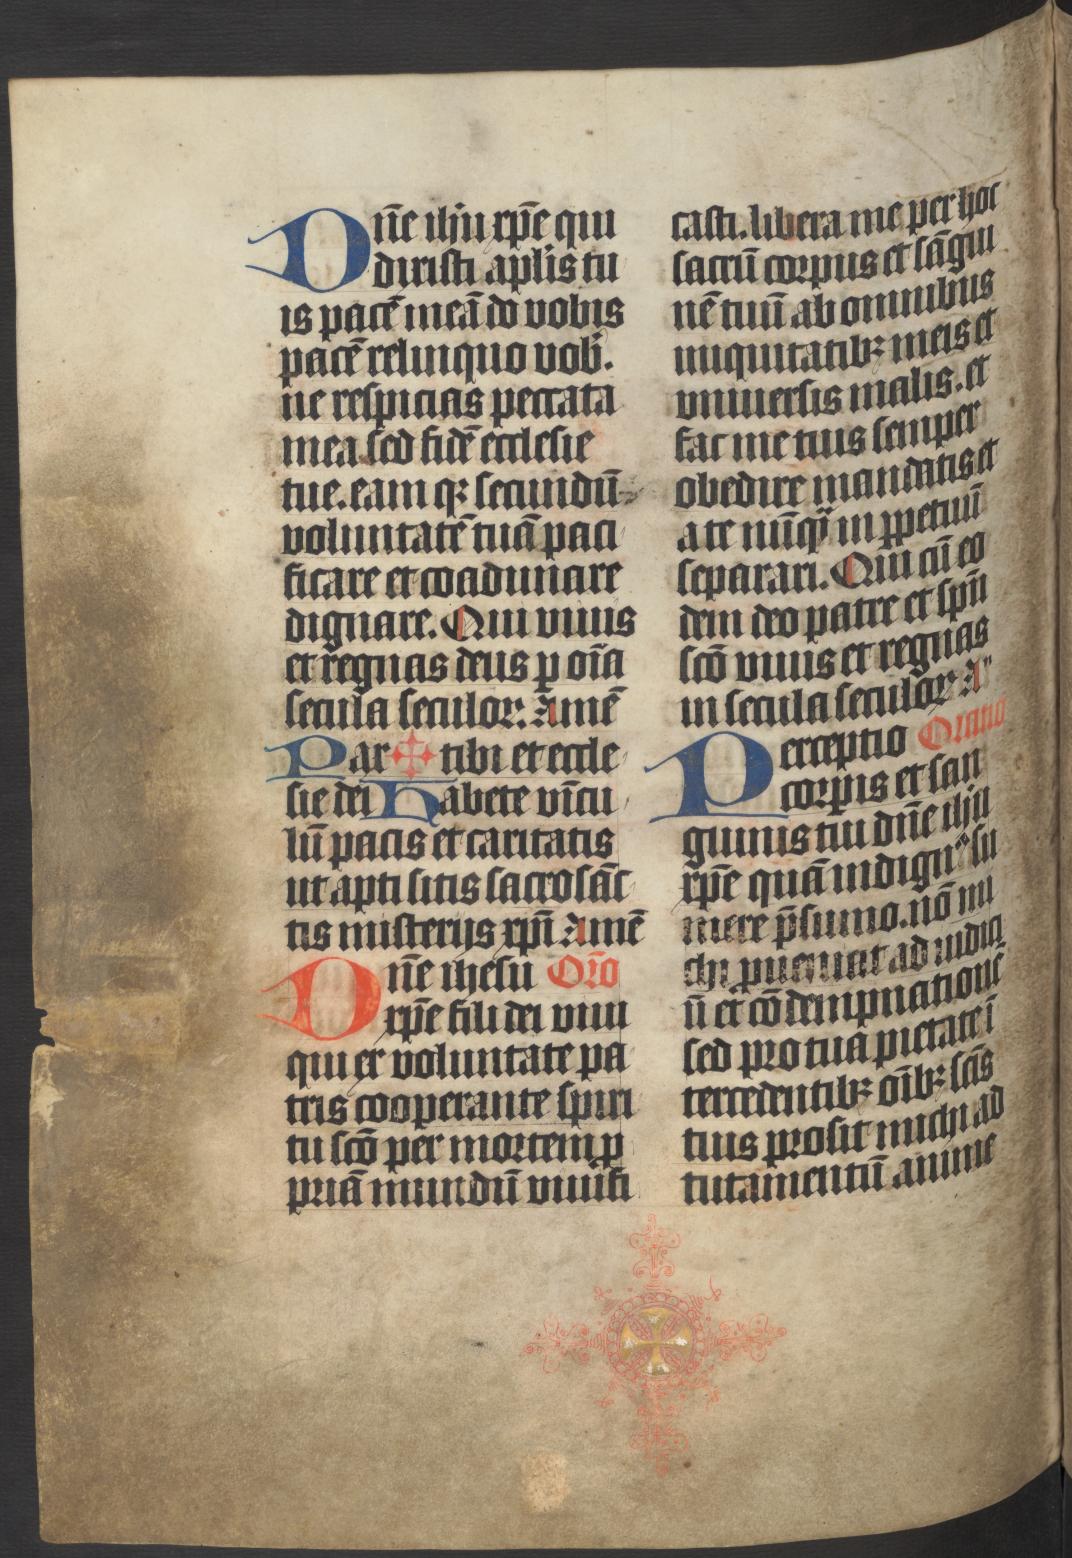 Dn̄e ih̄u xp̄e qui
dixisti apl̄is tu
is pacē meā do vobis
pacē relinquo vob̄.
ne respicias peccata
mea sed fidē ecclesie
tue. eam qꝫ secundū
voluntatē tuā paci
ficare et coadunare
dignare. Qui viuis
et regnas deus ꝑ oīa
secula seculoꝝ. amē
Pax ✠ tibi et eccle
sie dei Habete vīcu
lū pacis et caritatis
ut apti sitis sacrosāc
tis misterijs xp̄i Amē
Dn̄e ihesu Oro
xp̄e fili dei viui
qui ex voluntate pa
tris cooperante spiri
tu scō per mortem ꝓ
priā mundū viuifi
casti. libera me per hoc
sacrū corpus et sāgui
nē tuū ab omnibus
iniquitatibꝫ meis et
vniuersis malis. et
fac me tuis semper
obedire mandatis et
a te nūqᷓ in ꝑpetuū
separari. Qui cū eo
dem deo patre et spū
scō viuis et regnas
in secula seculoꝝ A
Perceptio Oratio
corpis et san
guinis tui dn̄e ih̄u
xp̄e quā indignꝰ su
mere p̄sumo. nō mi
chi ꝓueniat ad iudici
ū et cōdempnationē
sed pro tua pietate ī
tercedentibꝫ oībꝫ scīs
tuis prosit michi ad
tutamentū anime